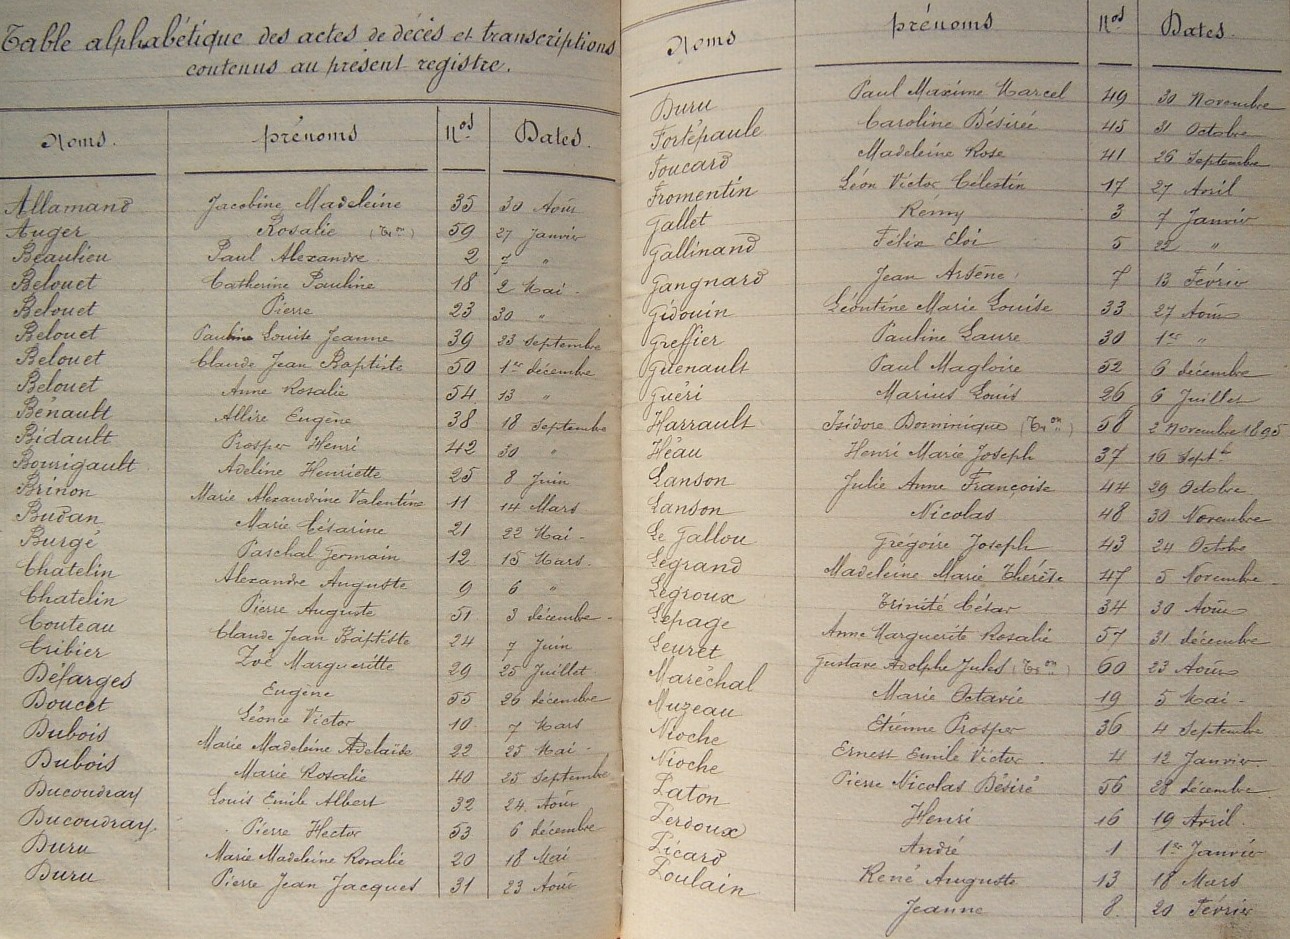 Table alphabétique des actes de décès et transcriptions
contenus au présent registre.
Noms. prénoms Nos Dates.
Allamand Jacobine Madeleine 35 30 Août
Auger Rosalie (Tr.on) 59 27 Janvier
Beaulieu Paul Alexandre 2 7 "
Belouet Catherine Pauline 18 2 Mai
Belouet Pierre 23 30 "
Belouet Pauline Louise Jeanne 39 23 Septembre
Belouet Claude Jean Baptiste 50 1er décembre
Belouet Anne Rosalie 54 13 "
Bénault Allire Eugène 38 18 Septembre
Bidault Prosper Henri 42 30 "
Bourigault Adeline Henriette 25 8 Juin
Brinon Marie Alexandrine Valentine 11 14 Mars
Budan Marie Césarine 21 22 Mai
Burgé Paschal Germain 12 15 Mars
Chatelin Alexandre Auguste 9 6 "
Chatelin Pierre Auguste 51 3 décembre
Couteau Claude Jean Baptiste 24 7 Juin
Cribier Zoé Margueritte 29 25 Juillet
Défarges Eugène 55 26 décembre
Doucet Léonce Victor 10 7 Mars
Dubois Marie Madeleine Adelaïde 22 25 Mai
Dubois Marie Rosalie 40 25 Septembre
Ducoudray Louis Emile Albert 32 24 Août
Ducoudray Pierre Hector 53 6 décembre
Duru Marie Madeleine Rosalie 20 18 Mai
Duru Pierre Jean Jacques 31 23 Août
Noms prénoms Nos Dates.
Duru Paul Maxime Marcel 49 30 Novembre
Fortépaule Caroline Désirée 45 31 Octobre
Foucard Madeleine Rose 41 26 Septembre
Fromentin Léon Victor Célestin 17 27 Avril
Gallet Rémy 3 7 Janvier
Gallinand Félix Eloi 5 22 "
Gangnard Jean Arsène 7 13 Février
Gidouin Léontine Marie Louise 33 27 Août
Greffier Pauline Laure 30 1er "
Guenault Paul Magloire 52 6 décembre
Guéri Marius Louis 26 6 Juillet
Harrault Isidore Dominique (Tr.on) 58 2 Novembre 1895
Héau Henri Marie Joseph 37 16 Septbre
Lanson Julie Anne Françoise 44 29 Octobre
Lanson Nicolas 48 30 Novembre
Le Gallou Grégoire Joseph 43 24 Octobre
Legrand Madeleine Marie Thérèse 47 5 Novembre
Legroux Trinité César 34 30 Août
Lepage Anne Marguerite Rosalie 57 31 décembre
Leuret Gustave Adolphe Jules (Tr.on) 60 23 Août
Maréchal Marie Octavie 19 5 Mai
Muzeau Etienne Prosper 36 4 Septembre
Nioche Ernest Emile Victor 4 12 Janvier
Nioche Pierre Nicolas Désiré 56 28 décembre
Paton Henri 16 19 Avril
Perdoux André 1 1er Janvier
Picard René Auguste 13 18 Mars
Poulain Jeanne 8 20 Février